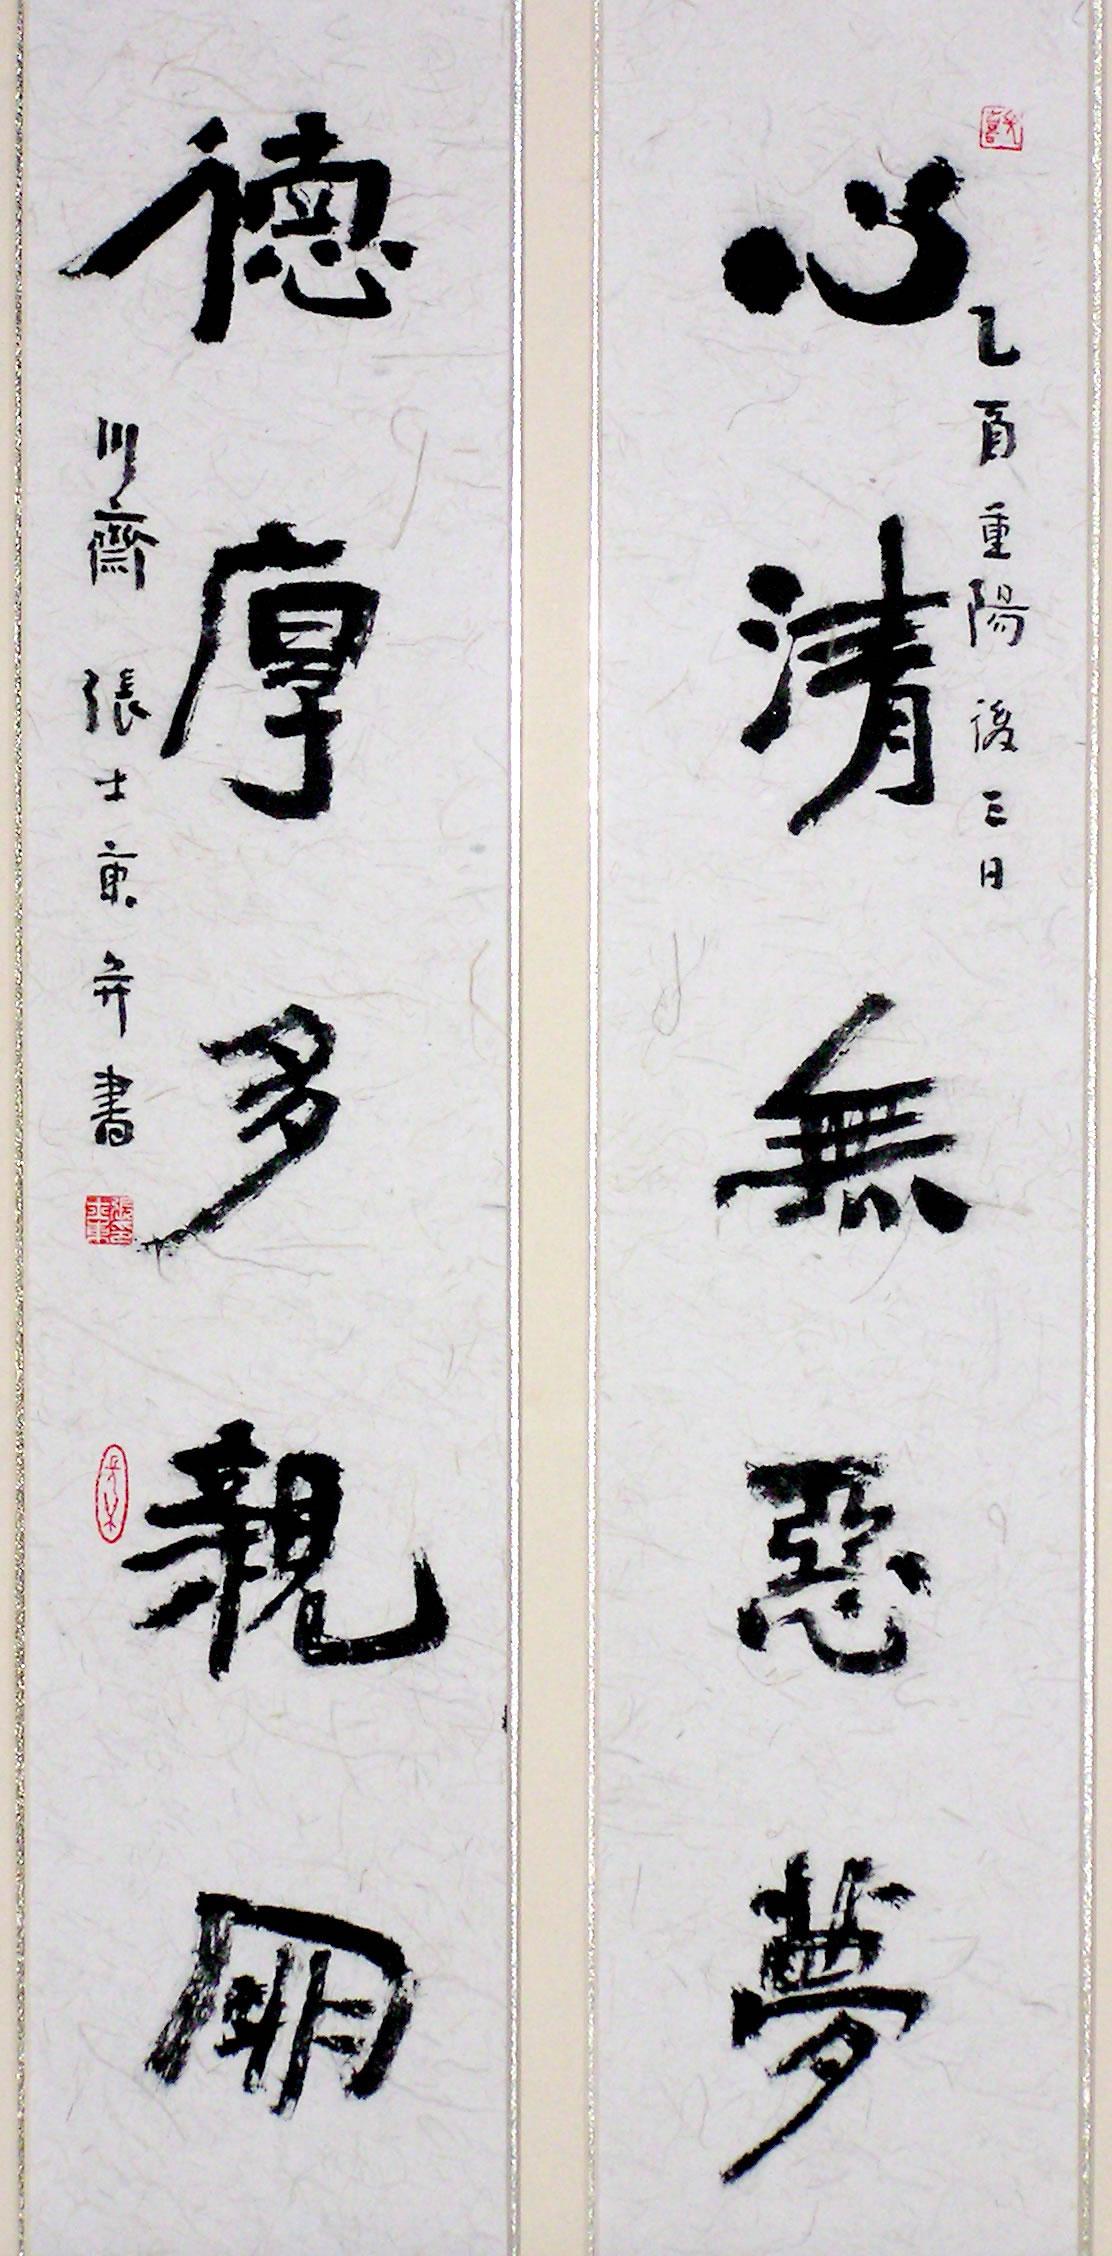 心清無惡夢
乙酉重陽後三日
德厚多親朋
川齋 張士東并書